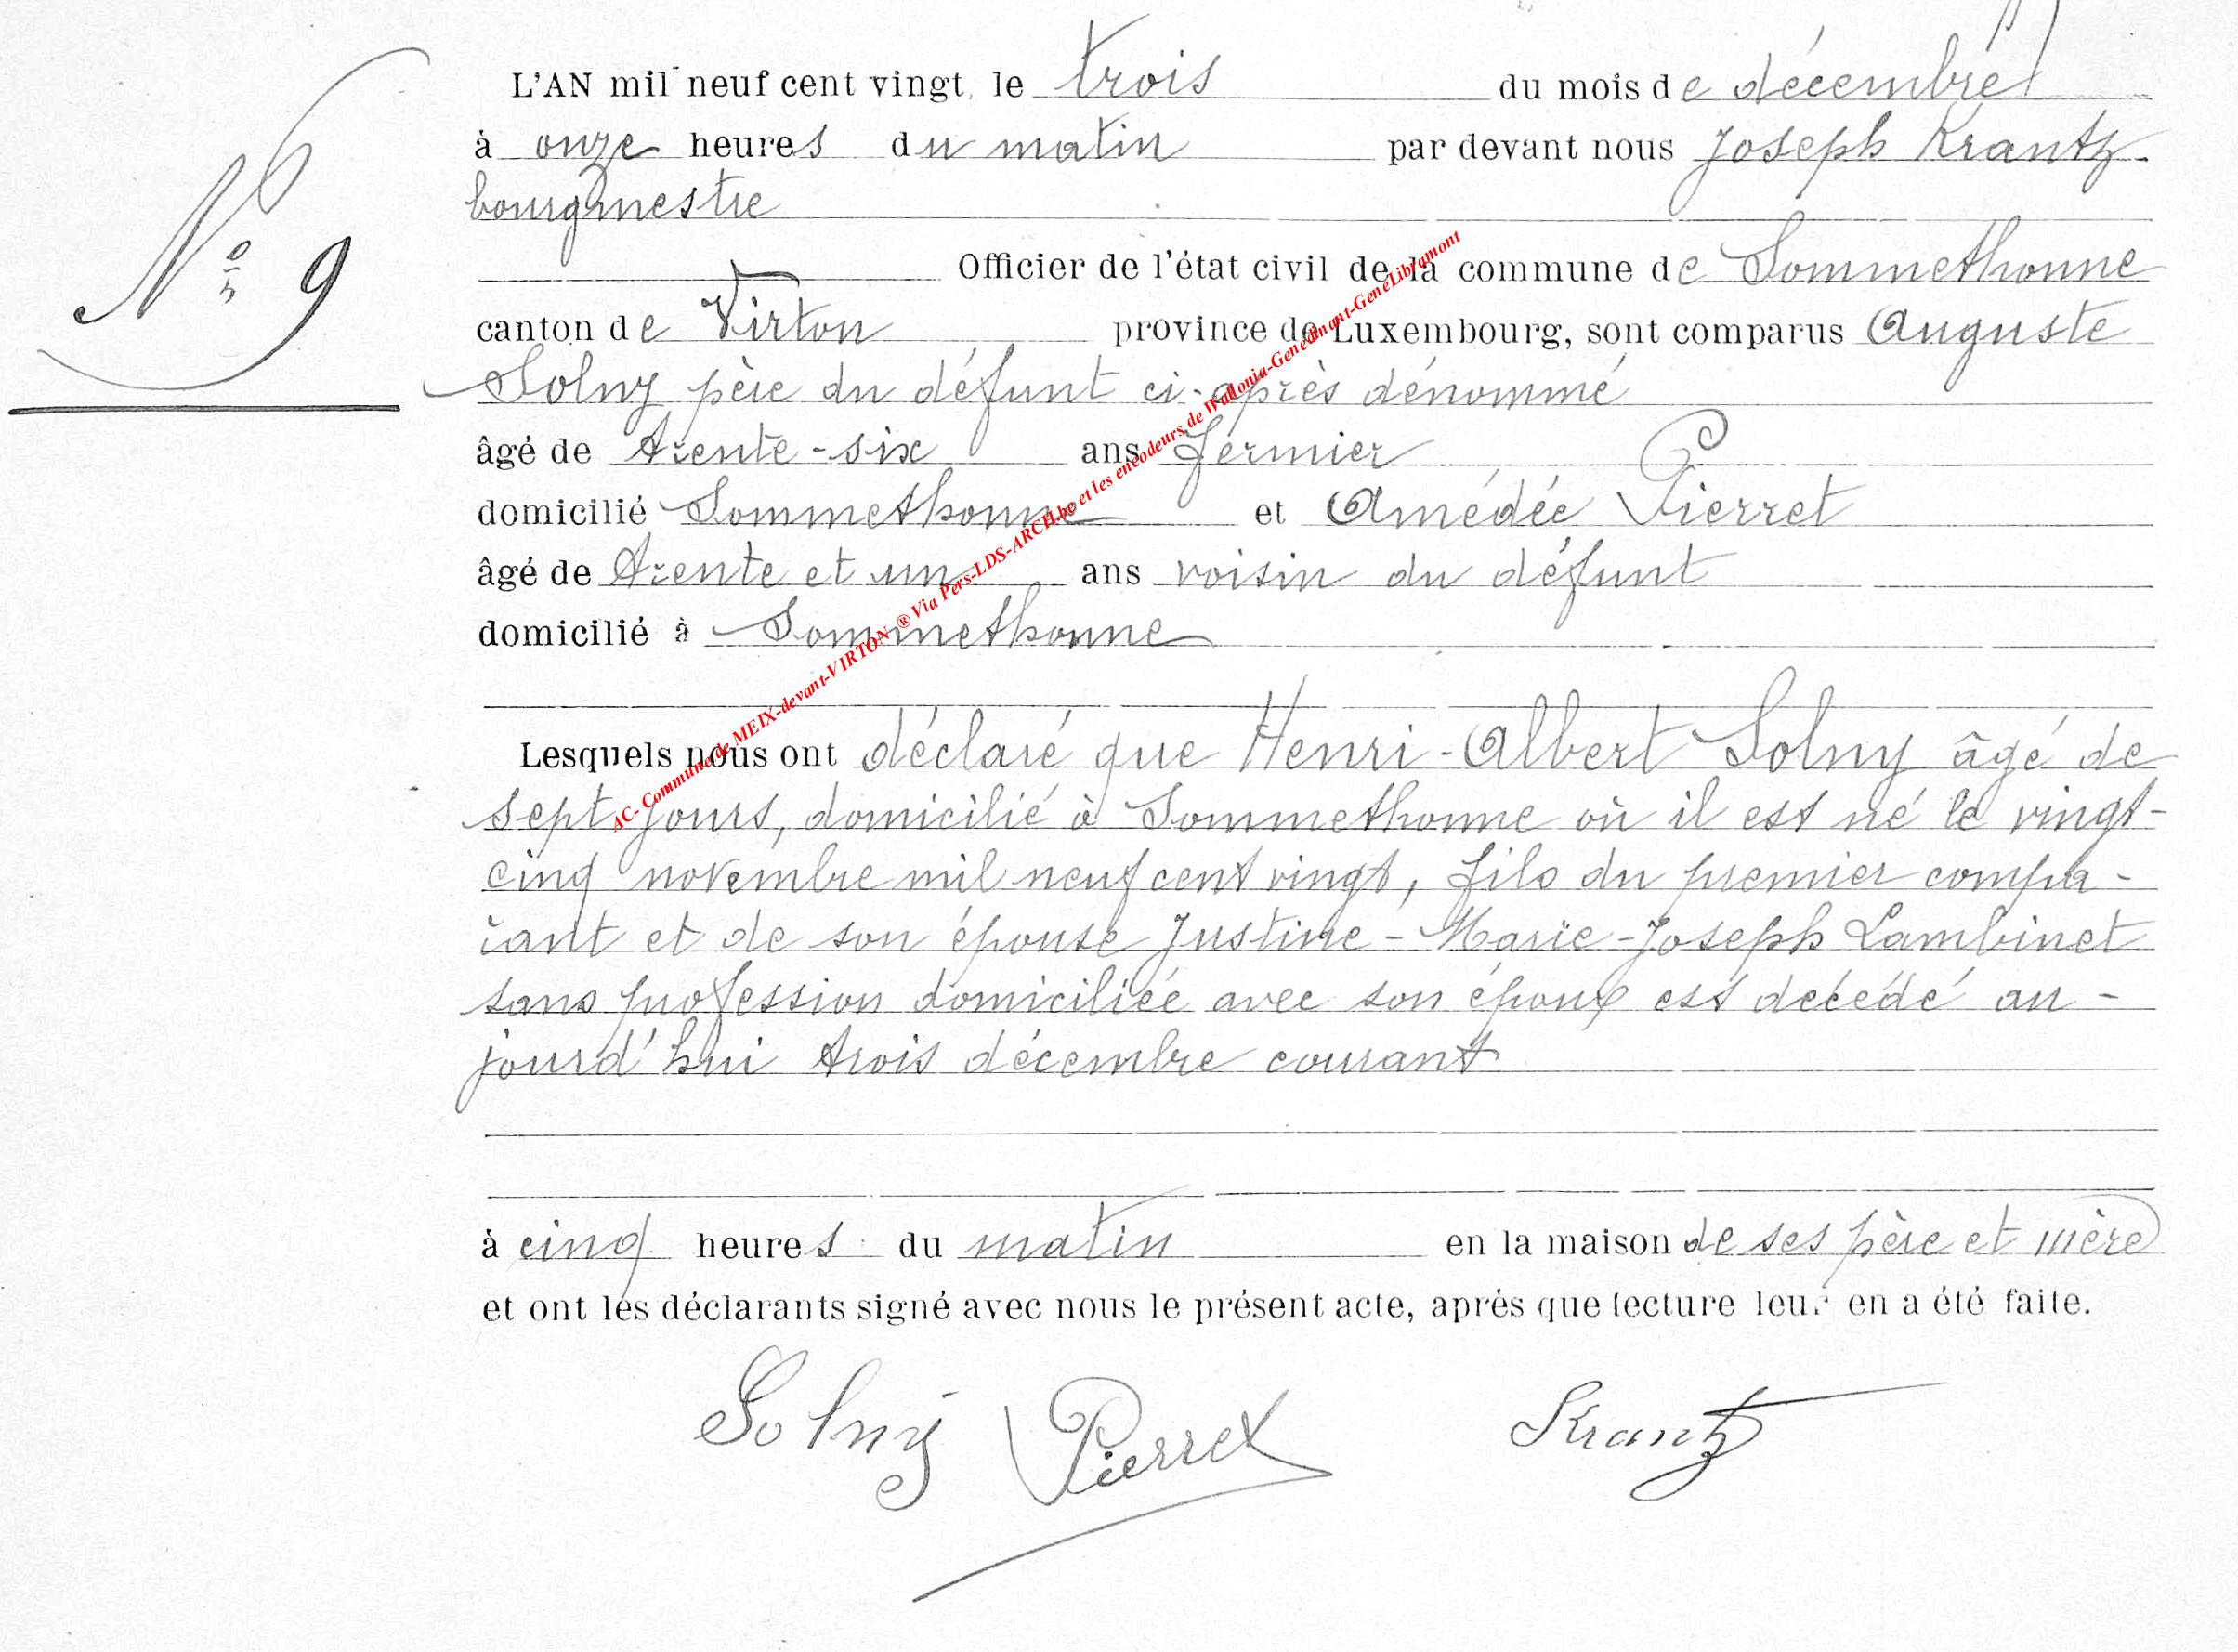 L'AN mil neuf cent vingt, le trois du mois de décembre
à onze heures du matin par devant nous Joseph Krantz
bourgmestre
Officier de l'état civil de la commune de Sommethonne
canton de Virton province de Luxembourg, sont comparus Auguste
Solny père du défunt ci-après dénommé
âgé de trente-six ans fermier
domicilié Sommethonne et Amédée Pierret
âgé de trente et un ans voisin du défunt
domicilié à Sommethonne
N° 9
Lesquels nous ont déclaré que Henri-Albert Solny âgé de
sept jours, domicilié à Sommethonne où il est né le vingt-
cinq novembre mil neuf cent vingt, fils du premier compa-
rant et de son épouse Justine-Marie-Joseph Lambinet
sans profession domiciliée avec son époux est décédé au-
jourd'hui trois décembre courant
à cinq heures du matin en la maison de ses père et mère
et ont les déclarants signé avec nous le présent acte, après que lecture leur en a été faite.
Solny Pierret Krantz
AC- Commune de MEIX-devant-VIRTON ® Via Pers-LDS-ARCH.be et les encodeurs de Wallonia-Genedinant-GeneLibramont